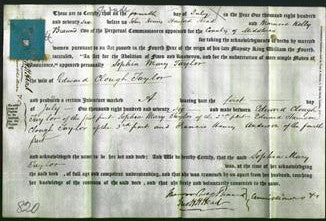 These are to Certify, that on the fourth day of July in the Year One thousand eight hundred
and sixty six before us John Henry Head and Vernon Kelly
Braund Two of the Perpetual Commissioners appointed for the County of Middlesex
for taking the acknowledgments of deeds by married
women pursuant to an Act passed in the Fourth Year of the reign of his late Majesty King William the Fourth
intituled "An Act for the Abolition of Fines and Recoveries, and for the substitution of more simple Modes of
Assurance" appeared personally Sophia Mary Taylor
The wife of Edward Clough Taylor
and produced a certain Indenture marked A bearing date the first day
of July One thousand eight hundred and sixty six and made between Edward Clough
Taylor of the first part Sophia Mary Taylor of the 2nd part Edward
Clough Taylor of the 3rd part and Francis Henry Anderson of the fourth
part
and acknowledged the same to be her act and deed: And We do hereby Certify, that the said Sophia Mary
Taylor was, at the time of her acknowledging
the said deed, of full age and competent understanding, and that she was examined by us apart from her husband, touching
her knowledge of the contents of the said deed, and that she freely and voluntarily consented to the same.
820